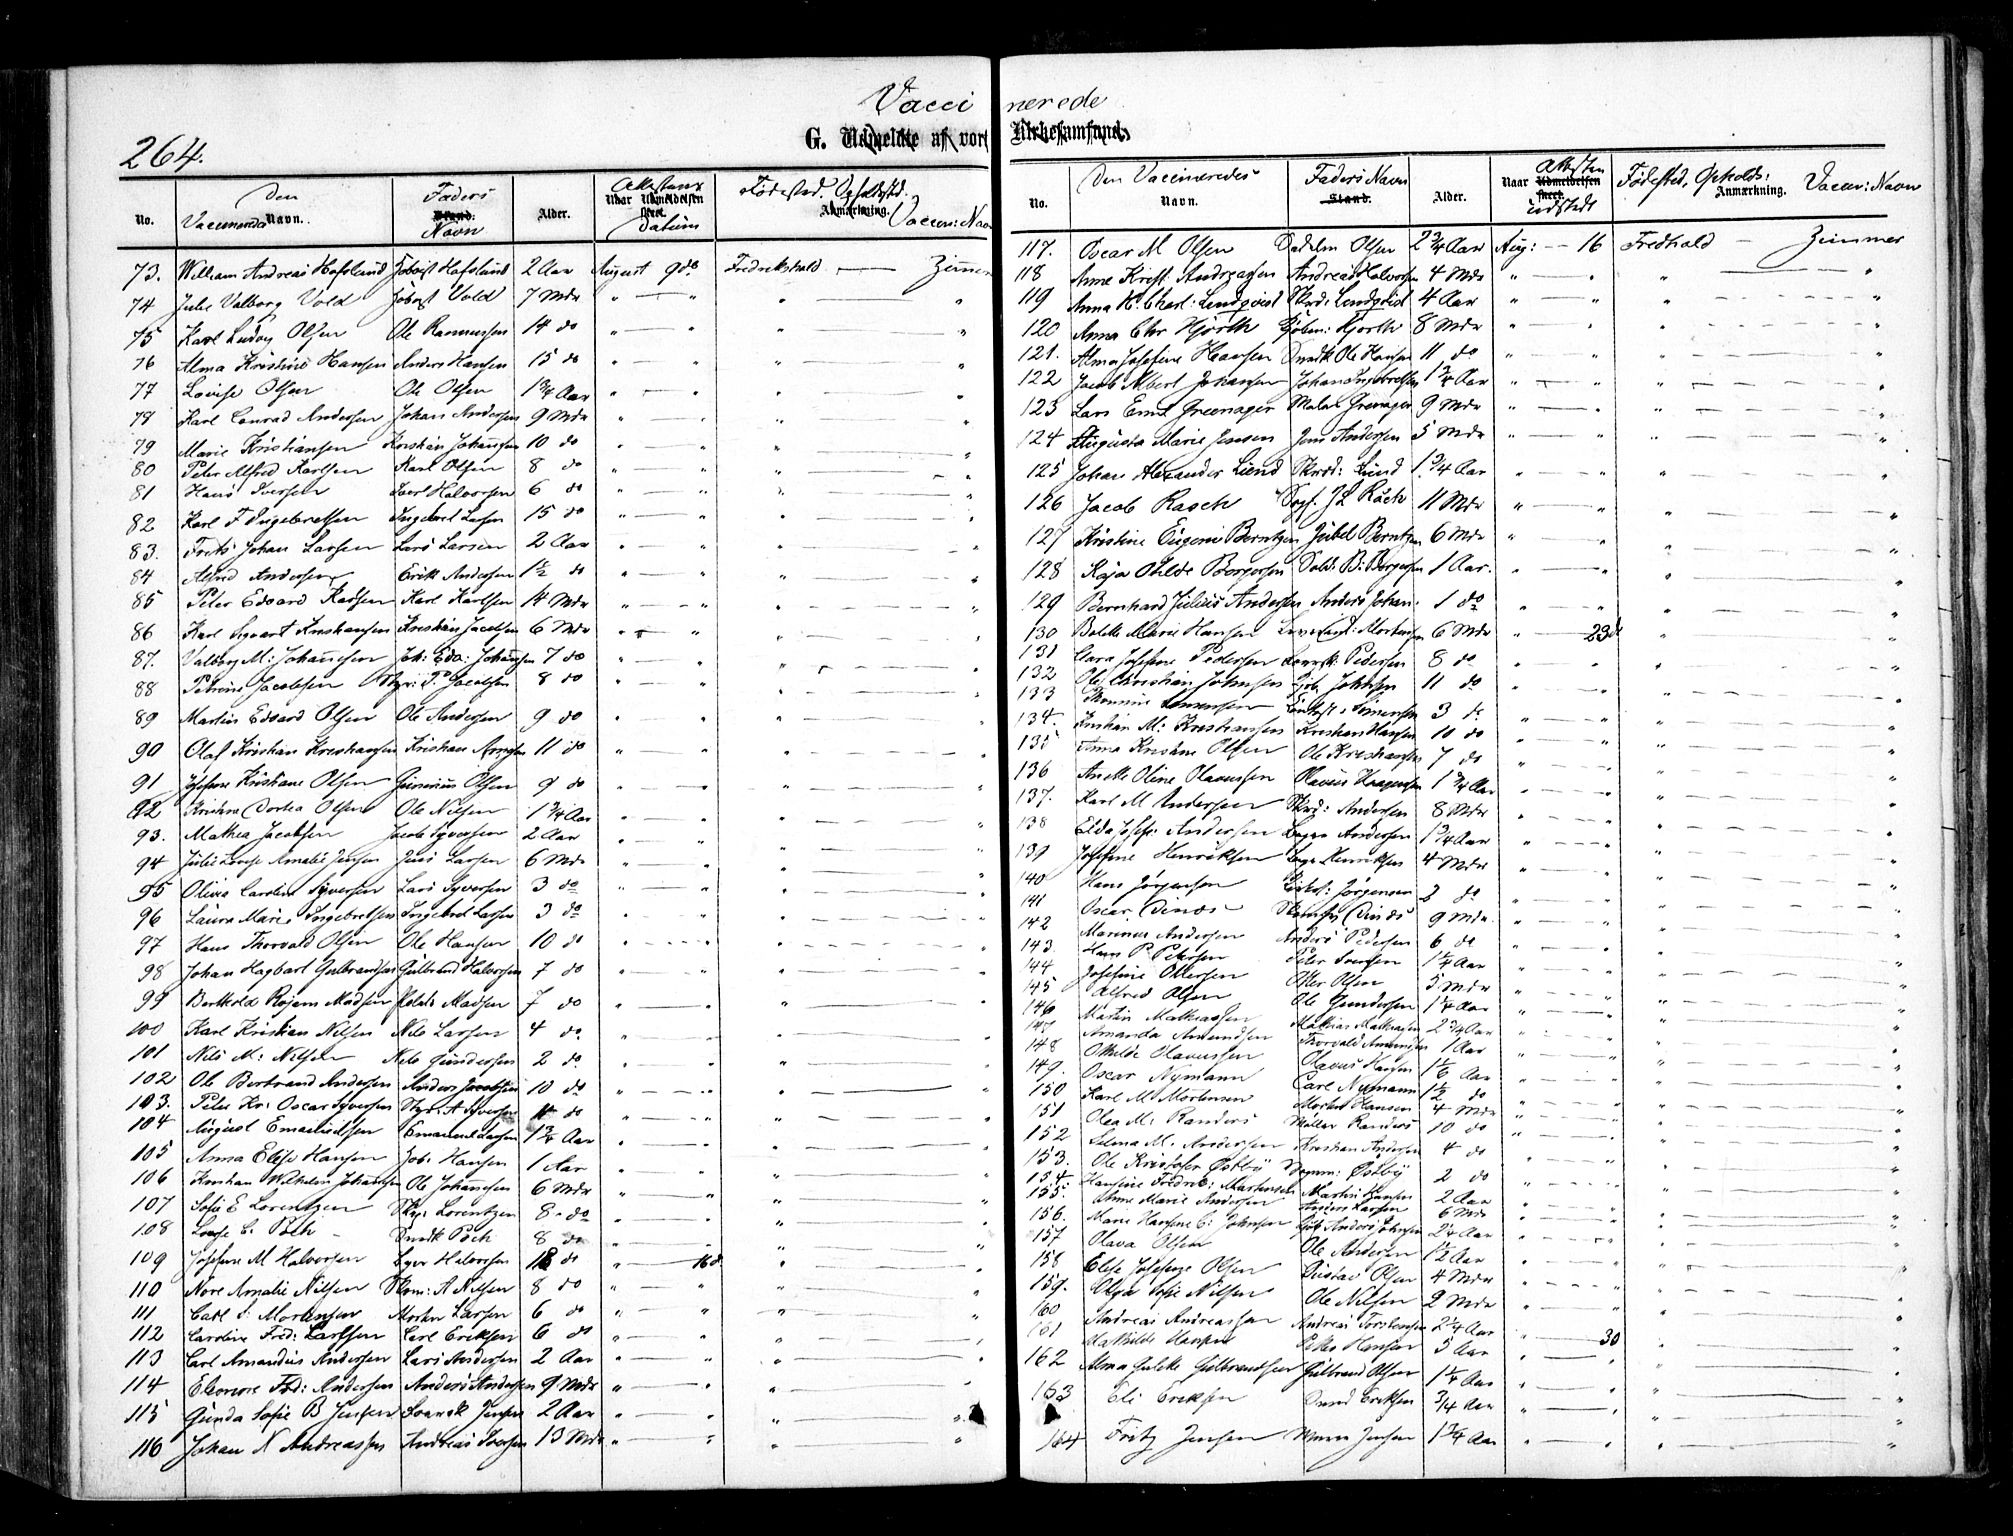 Vaccinerede
264.
G. Udmeldte af vort Kirkesamfund.
No. Den Vaccineredes Navn. Faders Stand. Navn Alder. Attestens Naar Udmeldelsen skeet. Datum Fødested, Opholdsted. Anmærkning. Vaccin: Navn
73. William Andreas Hafslund Jobast Hafslund 2 Aar August 9 do Fredrikshald — Zimmer
74 Julie Valborg Vold Jobast Vold 7 Mdr " — " " "
75 Karl Ludvig Olsen Ole Rasmussen 14 do " — " " "
76 Alma Kristine Hansen Anders Hansen 15 do " " " "
77 Lovise Olsen Ole Olsen 1 3/4 Aar " — " " "
78 Karl Conrad Andersen Johan Andersen 9 Mdr " " " "
79 Marie Kristiansen Kristian Johansen 10 do " — " " "
80 Peter Alfred Karlsen Karl Olsen 8 do " " " "
81 Hans Iversen Iver Halvorsen 6 do " — " " "
82 Karl F Ingebretsen Ingebret Larsen 15 do " — " " "
83. Frits Johan Larsen Lars Larsen 2 Aar " — " " "
84 Alfred Andersen Erik Andersen 1 1/2 do " " " "
85 Peter Edvard Karlsen Karl Karlsen 14 Mdr " — " " "
86 Karl Sigvart Kristiansen Kristian Jacobsen 6 Mdr " — " " "
87. Valborg M: Johannesen Joh: Edv: Johannesen 7 do " — " " "
88 Petrine Jacobsen Styr: P. Jacobsen 8 do " — " " "
89 Martin Edvard Olsen Ole Andersen 9 do " " " "
90 Olaf Kristian Kristiansen Kristian 11 do " " " "
91 Josefine Kristiane Olsen Olsen 9 do " — " " "
92 Kristine Dortea Olsen Ole Nilsen 1 3/4 Aar " — " " "
93. Mathea Jacobsen Jacob Syversen 2 Aar " — " " "
94 Julie Lovise Amalie Jensen Jens Larsen 6 Mdr " — " " "
95 Olivia Caroline Syversen Lars Syversen 3 do " — " " "
96 Laura Marie Ingebretsen Ingebret Larsen 3 do " " " "
97 Hans Thorvald Olsen Ole Hansen 10 do " — " " "
98 Johan Hagbart Gulbrandsen Gulbrand Halvorsen 7 do " — " " "
99 Berthold Madsen Madsen 7 do " — " " "
100 Karl Kristian Nilsen Nils Larsen 4 do " — " " "
101 Nils M: Nilsen Nils Gundersen 2 do " — " " "
102 Ole Bertrand Andersen Anders Jacobsen 10 do " — " " "
103. Peter Kr: Oscar Syversen Styr: A Syversen do " — " " "
104 August Emanuelsen Emanuel Larsen 1 3/4 Aar " — " " "
105 Anna Elise Hansen Job: Hansen 1 Aar " — " " "
106 Kristian Wilhelm Johannesen Ole Johannesen 6 Mdr " — " " "
107 Sofie E Lorentzen Lorentzen 8 do " — " " "
108 Lovise C. Poch Snedk Poch 8 do " — " " "
109 Josefine M Halvorsen Halvorsen 18 do " — 16 d " "
110 Nore Amalie Nilsen A Nilsen 8 do " — " " "
111 Carl Mortensen Morten Larsen 6 do " — " " "
112 Caroline Fred: Carlsen Carl Eriksen 6 do " — " " "
113 Carl Amandus Andersen Lars Andersen 2 Aar " — " " "
114 Elenore Fred: Andersen Anders Andersen 9 Mdr " — " " "
115 Gunda Sofie B Jensen Svensk Jensen 2 Aar " — " " "
116 Johan N Andreassen Andreas Iversen 13 Mdr " — " " "
No. Den Vaccineredes Navn. Faders Navn Stand. Alder. Naar Attesten Udmeldelsen skeet. udstedt Fødested, Opholds: Anmærkning. Vaccin: Navn
117. Oscar M Olsen Sadelm Olsen 2 3/4 Aar Aug: — 16 Fredhald — Zimmer
118 Anne Krist. Andreasen Andreas Halvorsen 4 Mdr " " " "
119 Anna K. Charl: Lendqvist Skrd: Lendqvist 4 Aar " — " " "
120 Anna Chr Hjorth Kjøbm: Hjorth 8 Mdr " " " "
121. Alma Josefine Hansen Snedk Ole Hansen 11 do " — " " "
122 Jacob Albert Johansen Johan Ingebretsen 1 3/4 Aar " — " " "
123 Lars Emil Grennager Maler Grenager 9 Mdr " — " " "
124 Augusta Marie Jensen Jens Andersen 5 Mdr " — " " "
125 Johan Alexander Lund Skrd: Lund 1 3/4 Aar " — " " "
126 Jacob Rasch J L Rasch 11 Mdr " — " " "
127 Kristine Eugeni Berntzen Berntzen 6 Mdr " — " " "
128 Kaja Othilde Borgersen B: Borgersen 1 Aar. " — " " "
129 Bernhard Julius Andersen Anders Johan: 1 do " " " "
130 Bolette Marie Hansen Mortensen 6 Mdr " — 23 d " "
131 Clara Josefine Pedersen Pedersen 8 do " " " "
132 Ole Christian Johnsen Johnsen 11 do " — " " "
133 Simensen Simensen 3 do " — " " "
134. Kristian M: Kristiansen Kristian Hansen 10 do " — " " "
135 Anna Kristine Olsen Ole Kristiansen 7 do " — " " "
136 Anette Oline Olavessen Olaves Haagensen 1 3/4 Aar " — " " "
137. Karl M Andersen Skrd: Andersen 8 Mdr " — " " "
138 Elda Josefi: Andersen Andersen 1 3/4 Aar " — " " "
139 Josefine Henriksen Henriksen 4 Mdr " — " " "
140 Hans Jørgensen Jørgensen 3 do " — " " "
141 Oscar 9 Mdr " — " " "
142 Marinus Andersen Anders Pedersen 6 do " — " " "
143. Hans P. Petersen Peter Svensen 1 1/4 Aar " — " " "
144 Josefine Ottersen Otter Olsen 5 Mdr " — " " "
145 Alfred Olsen Ole Gundersen 1 1/4 Aar " — " " "
146 Martin Mathiassen Mathias Mathiasen 2 3/4 Aar " — " " "
147 Amanda Amundsen Thorvald Amundsen 1 Aar " — " " "
148 Othilde Olavessen Olaves Hansen 1 1/6 Aar " — " " "
149. Oscar Nymann Carl Nymann 1 1/2 do " — " " "
150 Karl M Mortensen Morten Hansen 4 Mdr " — " " "
151 Olea M: Randers Møller Randers 10 do " — " " "
152 Selma M: Andersen Kristian Andersen 4 do " — " " "
153. Ole Kristofer Østby Østby 2 do " — " " "
154 Hansine Fredrik: Martinsen Martin Hansen 2 Aar " — " " "
155. Anne Marie Andersen Anders Larsen 6 Mdr " — " " "
156. Marie Hansine C: Johnsen Anders Johnsen 2 1/4 Aar " — " " "
157 Olava Olsen Ole Andersen 1 1/2 Aar " — " " "
158 Elise Josefine Olsen Gustav Olsen 4 Mdr " — " " "
159. Olga Sofie Nilsen Ole Nilsen 2 Mdr " — " " "
160 Andreas Andreassen Andreas Torstensen 2 1/4 Aar " — " " "
161 Mathilde Hansen Peter Hansen 5 Aar " — 30 " "
162 Alma Gulbrandsen Gulbrand Olsen 1 1/4 Aar " — " " "
163 Eli Eriksen Eriksen 3/4 Aar " — " " "
164 Fritz Jensen Jensen 1 3/4 Aar " — " " "